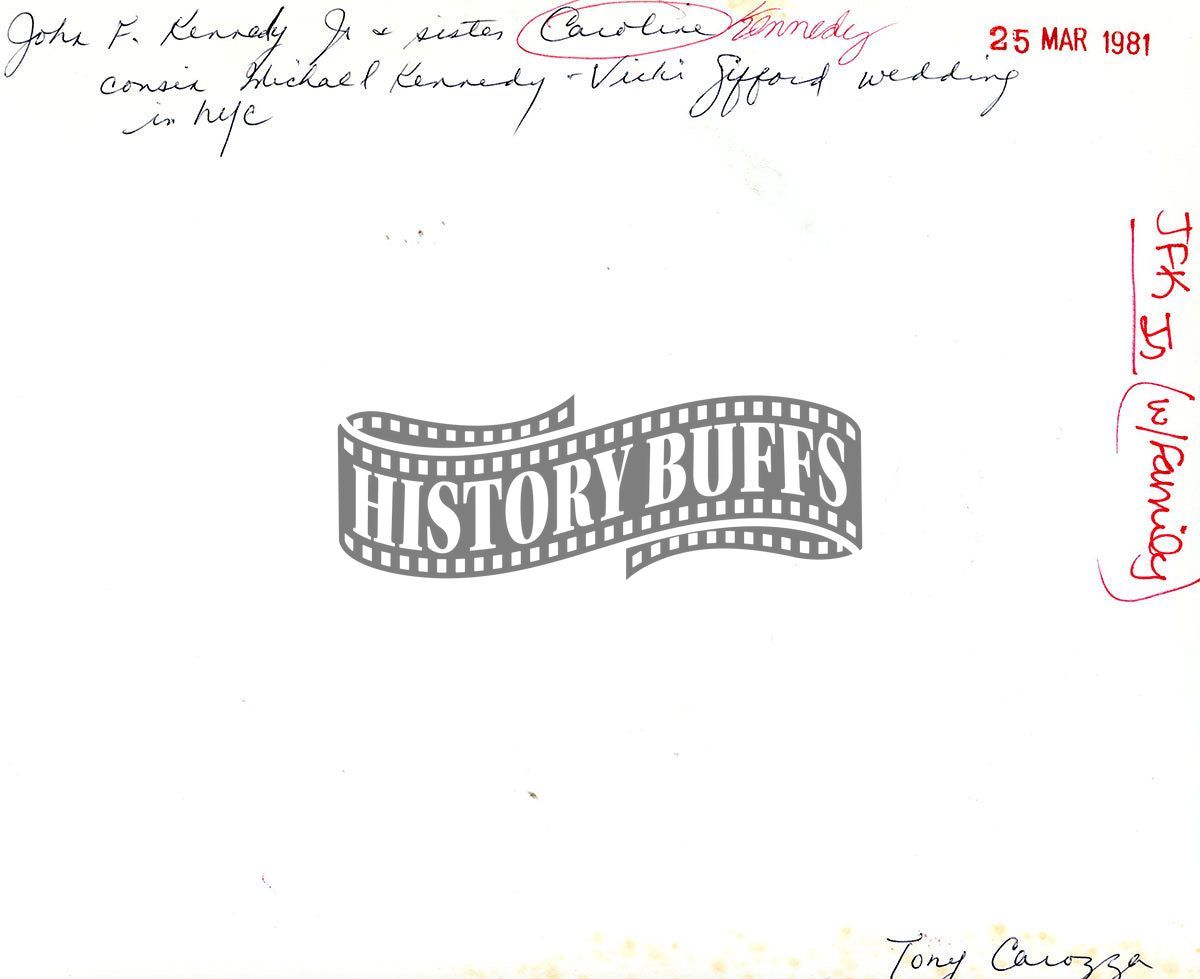 John F. Kennedy Jr & sister Caroline Kennedy
25 MAR 1981
cousin Michael Kennedy - Vicki Gifford wedding
in NYC
JFK Jr (w/Family)
HISTORY BUFFS
Tony Carozza